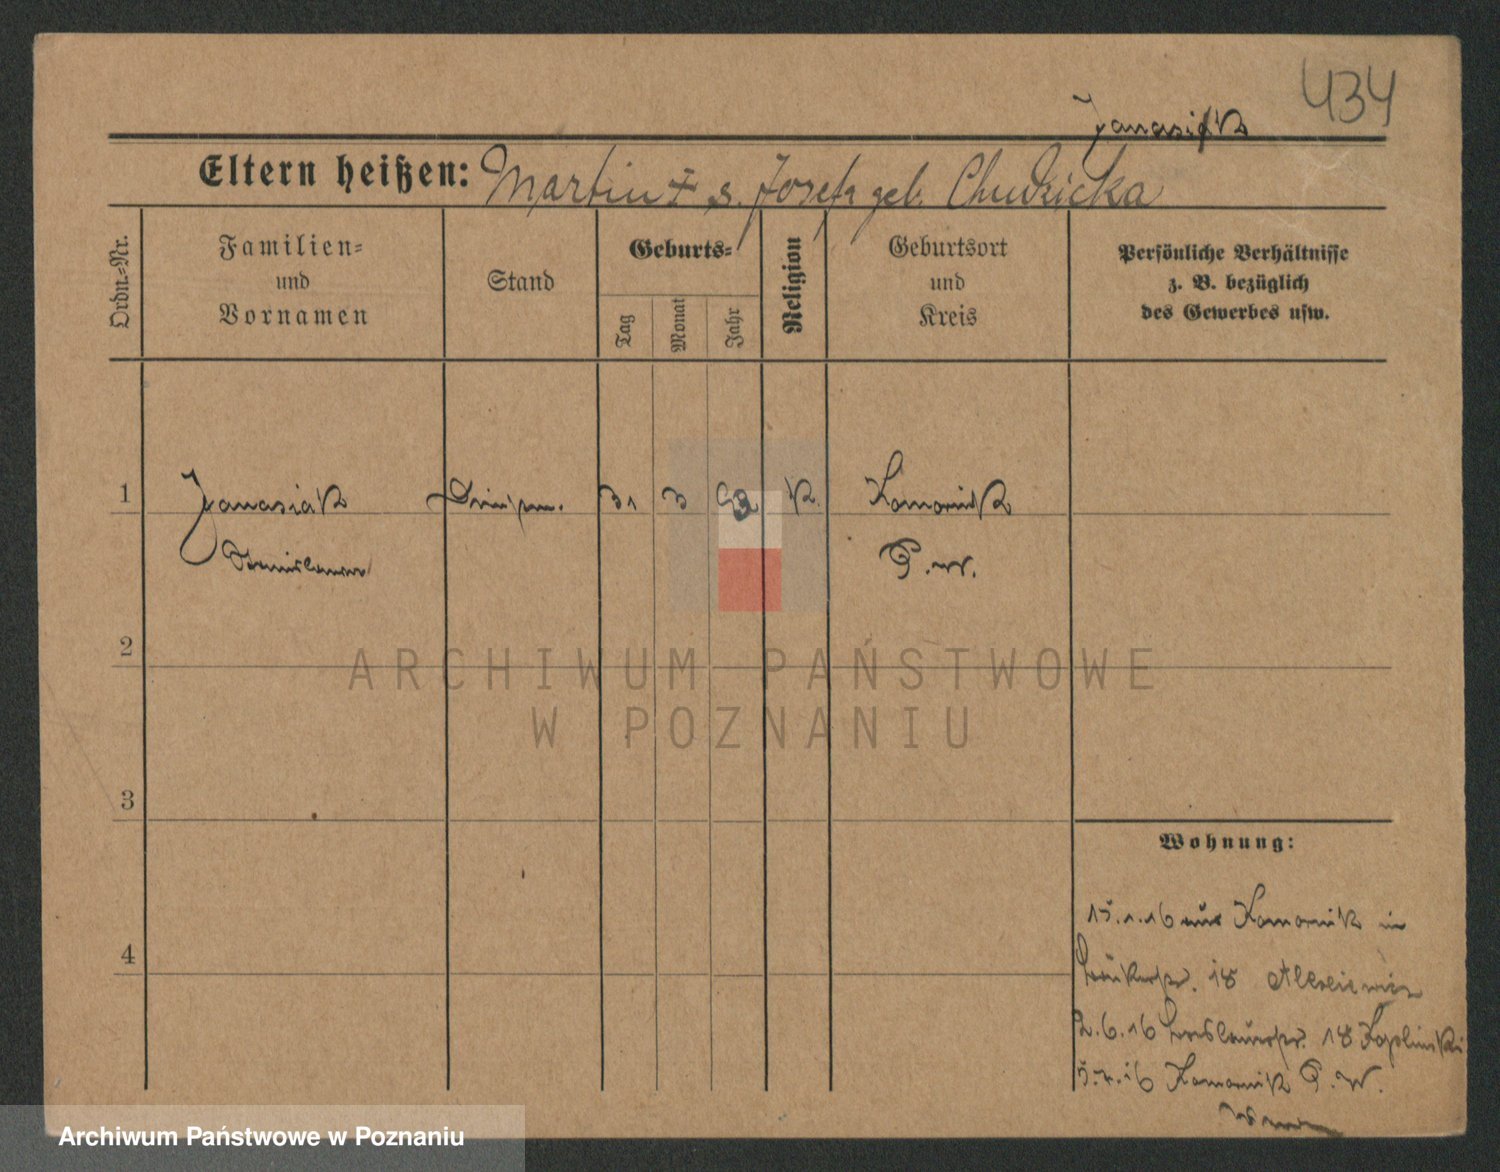 434
Janasiak
Eltern heißen: Martin ‡ s. Josefa geb. Chudzicka
Ordn.-Nr.
Familien-
und
Vornamen
Stand
Geburts-
Tag
Monat
Jahr
Religion
Geburtsort
und
Kreis
Persönliche Verhältnisse
z. B. bezüglich
des Gewerbes usw.
1 Janasiak 31 3 K. Komornik
Stanislaus P. W.
2
ARCHIWUM PAŃSTWOWE
W POZNANIU
3
Wohnung:
15.1.16 aus Komornik in
4
18
2.6.16 18 Kaplinski
5.7.16 Komornik P. W.
Archiwum Państwowe w Poznaniu